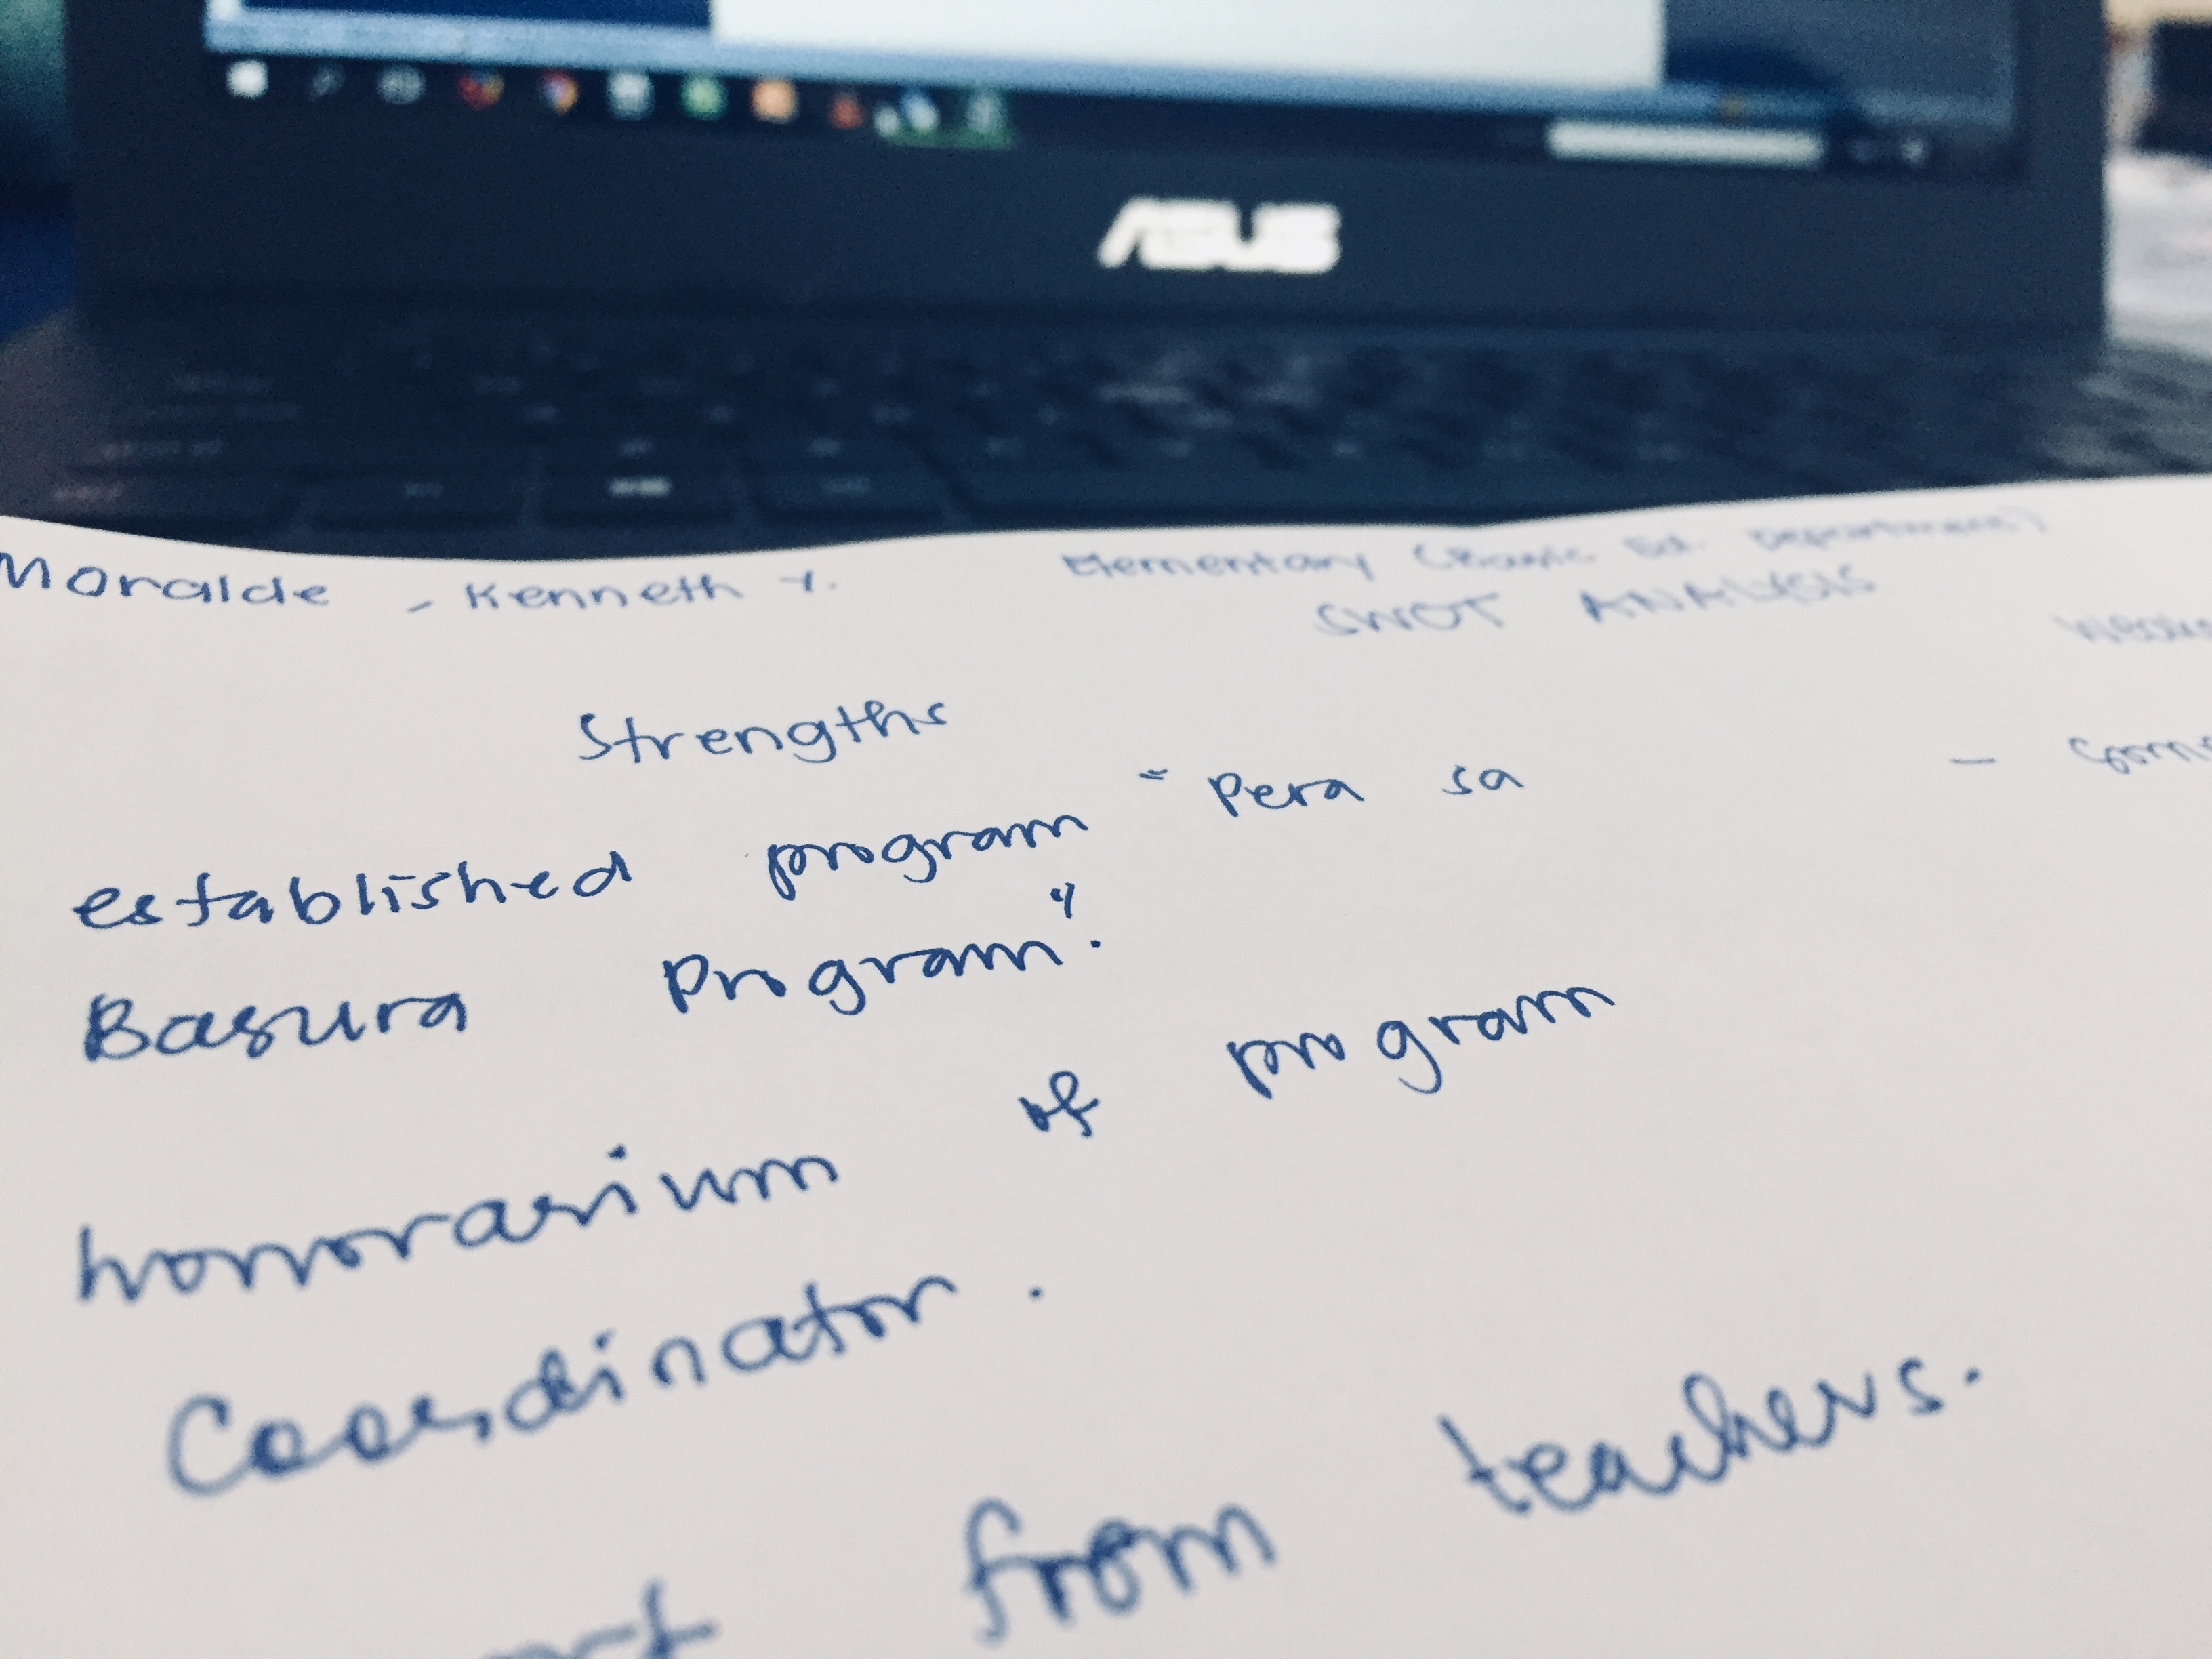 ASUS
Moralde, Kenneth Y. Elementary (Basic Ed. Department)
SWOT ANALYSIS
Strengths
established program "Pera sa
Basura Program".
honorarium of program
Coordinator.
from teachers.